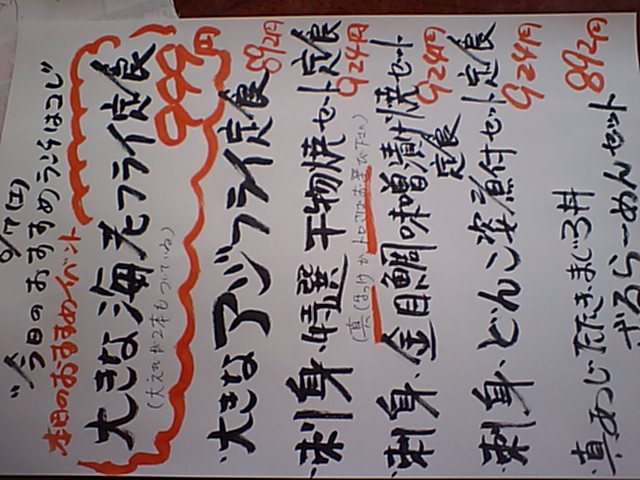 9/7(土)
"今日のおすすめランチはコレ"
本日のおすすめイベント
大きな海老フライ定食 999円
(大えびが2本もついている)
・大きなアジフライ定食 892円
・刺身・特選干物焼セット定食 924円
(真ほっけかトロサバお選び下さい)
・刺身・金目鯛味噌漬け焼セット定食 924円
・刺身・どんこ姿煮付セット定食 924円
・真あじたたき・まぐろ丼
ざるらーめんセット 892円